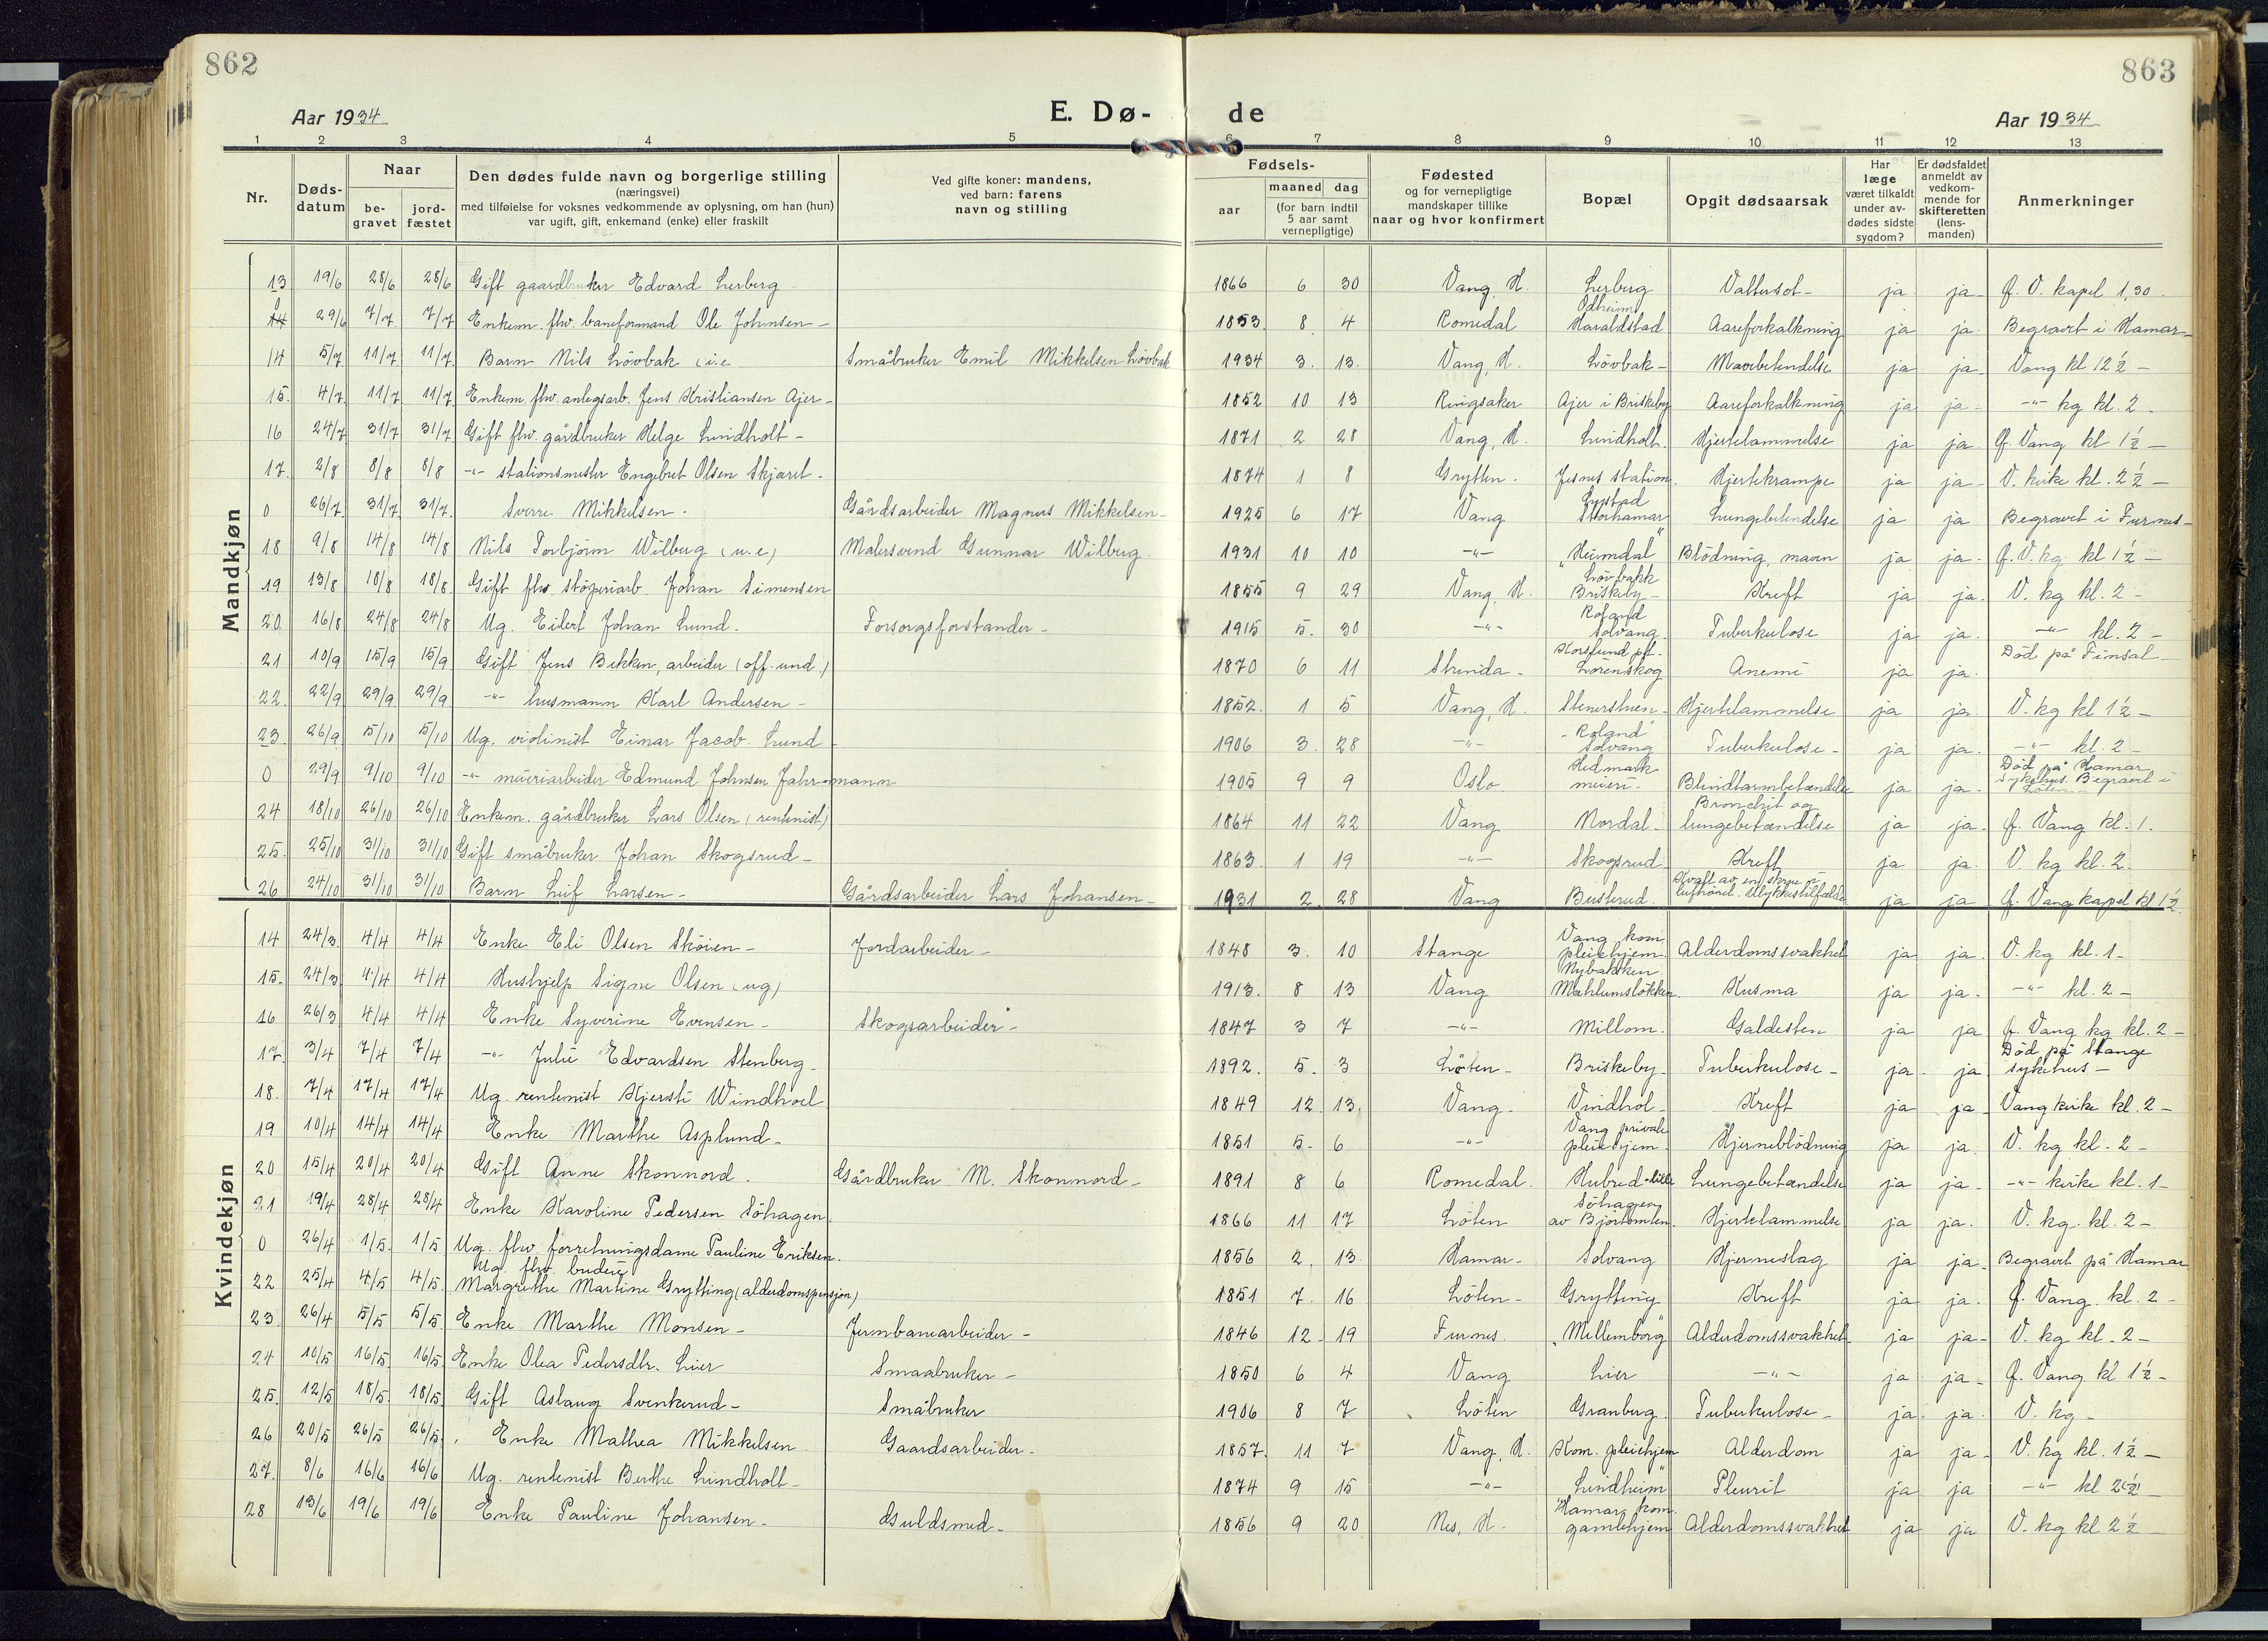 862
863
Aar 1934
E. Dø-
de
Aar 1934
1 2 3 4 5 6 7 8 9 10 11 12 13
Nr.
Døds-
datum
Naar
be-
gravet
jord-
fæstet
Den dødes fulde navn og borgerlige stilling
(næringsvei)
med tilføielse for voksnes vedkommende av oplysning, om han (hun)
var ugift, gift, enkemand (enke) eller fraskilt
Ved gifte koner: mandens,
ved barn: farens
navn og stilling
Fødsels-
aar
maaned dag
(for barn indtil
5 aar samt
vernepligtige)
Fødested
og for vernepligtige
mandskaper tillike
naar og hvor konfirmert
Bopæl
Opgit dødsaarsak
Har
læge
været tilkaldt
under av-
dødes sidste
sygdom?
Er dødsfaldet
anmeldt av
vedkom-
mende for
skifteretten
(lens-
manden)
Anmerkninger
Mandkjøn
13 19/6 28/6 28/6 Gift gaardbruker Edvard Lerberg 1866 6 30 Vang, H. Lerberg Vattersot ja ja f. V. kapel 1,30
0 29/6 7/7 7/7 Enkem. fhv. baneformand Ole Johnsen 1853 8 4 Romedal Odheim Haraldstad Aareforkalkning ja ja Begravet i Hamar
14 5/7 11/7 11/7 Barn Nils Lövbak (i.e. Småbruker Emil Mikkelsen Lövbak 1934 3 13 Vang, H. Lövbak Mavebetendelse ja ja Vang kl 12½
15 4/7 11/7 11/7 Enkem. fhv. anlegsarb. Jens Kristiansen Ajer 1852 10 13 Ringsaker Ajer i Briskeby Aareforkalkning ja ja -"- kg kl. 2
16 24/7 31/7 31/7 Gift fhv. gårdbruker Helge Lindholt 1871 2 28 Vang, H. Lindholt Hjertelammelse ja ja f. Vang kl 1½
17 2/8 8/8 8/8 -"- stationsmester Engebret Olsen Skjæret 1874 1 8 Grytten Jesnes station Hjertekrampe ja ja V. kirke kl. 2½
0 26/7 31/7 31/7 Sverre Mikkelsen Gårdsarbeider Magnus Mikkelsen 1925 6 17 Vang Lystad Storhamar Lungebetendelse ja ja Begravet i Furnes
18 9/8 14/8 14/8 Nils Torbjörn Wilberg (u.e) Malersvend Gunnar Wilberg 1931 10 10 -"- "Heimdal" Blödning, mavn ja ja f. V. kg. kl 1½
19 13/8 18/8 18/8 Gift fhv. stöperiarb. Johan Simensen 1855 9 29 Vang, H. Lövbakk Briskeby Kreft ja ja V. kg kl. 2
20 16/8 24/8 24/8 Ug. Eilert Johan Lund. Forsorgsforstander 1915 5 30 -"- Roland Solvang Tuberkulose ja ja -"- kl. 2
21 10/9 15/9 15/9 Gift Jens Bekken, arbeider (off. und.) 1870 6 11 Strinda Korslund pl. Lörenskog Anemi ja ja Död på Finsal
22 22/9 29/9 29/9 -"- husmann Karl Andersen 1852 1 5 Vang, H. Stenerstuen Hjertelammelse ja ja V. kg kl 1½
23 26/9 5/10 5/10 Ug. violinist Einar Jacob Lund 1906 3 28 -"- "Roland" Solvang Tuberkulose ja ja -"- kl. 2
0 29/9 9/10 9/10 -"- meieriarbeider Edmund Johnsen Fahrmann 1905 9 9 Oslo Hedmark meieri Blindtarmbetændelse ja ja Död på Hamar Sykehus. Begravet i Löten
24 18/10 26/10 26/10 Enkem. gårdbruker Lars Olsen (rentenist) 1864 11 22 Vang Nordal Bronchit og lungebetændelse ja ja f. Vang kl. 1.
25 25/10 31/10 31/10 Gift småbruker Johan Skogsrud 1863 1 19 -"- Skogsrud Kreft ja ja V. kg kl. 2.
26 24/10 31/10 31/10 Barn Leif Larsen Gårdsarbeider Lars Johansen 1931 2 28 Vang Busterud Kvalt av en skrue i luftröret. Ulykkestilfælde ja ja f. Vang kapel kl 1½
Kvindekjøn
14 24/3 4/4 4/4 Enke Eli Olsen Sköien Jordarbeider 1848 3 10 Stange Vang kom. pleiehjem Alderdomssvakhet ja ja V. kg kl. 1
15 24/3 4/4 4/4 Hushjelp Signe Olsen (ug) 1913 8 13 Vang Nybakken Mæhlumslökken Kusma ja ja -"- kl. 2
16 26/3 4/4 4/4 Enke Syverine Evensen Skogsarbeider 1847 3 7 -"- Millom Galdesten ja ja f. Vang kg kl. 2
17 3/4 7/4 7/4 -"- Julie Edvardsen Stenberg 1892 5 3 Löten Briskeby Tuberkulose ja ja Död på Stange sykehus
18 7/4 17/4 17/4 Ug. rentenist Kjersti Windhoel 1849 12 13 Vang Vindhol Kreft ja ja Vang kirke kl. 2
19 10/4 14/4 14/4 Enke Marthe Asplund 1851 5 6 -"- Vang private pleiehjem Hjerneblödning ja ja V. kg kl. 2
20 15/4 20/4 20/4 Gift Anne Skonnord. Gårdbruker M. Skonnord 1891 8 6 Romedal Hubred lille Lungebetændelse ja ja -"- kirke kl. 1
21 19/4 28/4 28/4 Enke Karoline Pedersen Söhagen 1866 11 17 Löten Söhagen av Björtomten Hjertelammelse ja ja V. kg. kl. 2
0 26/4 1/5 1/5 Ug. fhv. forretningsdame Pauline Eriksen 1856 2 13 Hamar Solvang Hjerneslag ja ja Begravet på Hamar
22 25/4 4/5 4/5 Ug. fhv. budeie Margrethe Martine Grytting (alderdomspensjon) 1851 7 16 Löten Grytting Kreft ja ja f. Vang kl. 2
23 26/4 5/5 5/5 Enke Marthe Monsen Jernbanearbeider 1846 12 19 Furnes "Mellemborg" Alderdomssvakhet ja ja V. kg kl. 2
24 10/5 16/5 16/5 Enke Olea Pedersdtr. Lier Smaabruker 1850 6 4 Vang Lier -"- ja ja f. Vang kl 1½
25 12/5 18/5 18/5 Gift Aslaug Svenkerud Småbruker 1906 8 7 Löten Granberg Tuberkulose ja ja V. kg
26 20/5 26/5 26/5 Enke Mathea Mikkelsen Gaardsarbeider 1857 11 7 Vang, H. Kom. pleiehjem Alderdom ja ja V. kg kl. 1½
27 8/6 16/6 16/6 Ug. rentenist Berthe Lindholt 1874 9 15 -"- "Lindheim" Pleurit ja ja -"- kl 2½
28 13/6 19/6 19/6 Enke Pauline Johansen Guldsmed 1856 9 20 Nes, H. Hamar kom. gamlehjem Alderdomssvakhet ja ja V. kg kl 2½